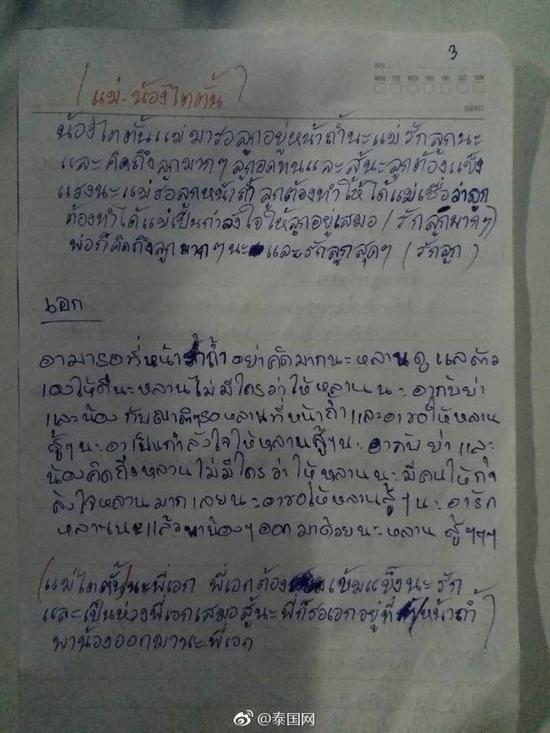 3
(แม่-น้องไตตั้น)
น้องไตตั้นแม่มารอลูกอยู่หน้าถ้ำนะแม่รักลูกนะ
และคิดถึงลูกมากๆลูกอดทนและสู้นะลูกต้องแข็ง
แรงนะแม่รอลูกหน้าถ้ำลูกต้องทำให้ได้แม่เชื่อว่าลูก
ต้องทำได้แม่เป็นกำลังใจให้ลูกอยู่เสมอ(รักลูกมากๆ)
พ่อก็คิดถึงลูกมากๆนะและรักลูกสุดๆ(รักลูก)
เอก
อามารอที่หน้าถ้ำอย่าคิดมากนะหลานดูแลตัว
เองให้ดีนะหลานไม่มีใครว่าให้หลานนะอากับย่า
และน้องกับญาติๆรอหลานที่หน้าถ้ำและอาขอให้หลาน
สู้ๆนะอาเป็นกำลังใจให้หลานสู้ๆนะอากับย่าและ
น้องคิดถึงหลานไม่มีใครว่าให้หลานนะมีคนให้กำ
ลังใจหลานมากเลยนะอาขอให้หลานสู้ๆนะอารัก
หลานนะแล้วพาน้องๆออกมาด้วยนะหลานสู้ๆๆๆ
(แม่ไตตั้น)นะพี่เอก พี่เอกต้องเข้มแข็งนะรัก
และเป็นห่วงพี่เอกเสมอสู้นะพี่ก็รอเอกอยู่ที่หน้าถ้ำ
พาน้องออกมานะพี่เอก
@泰国网